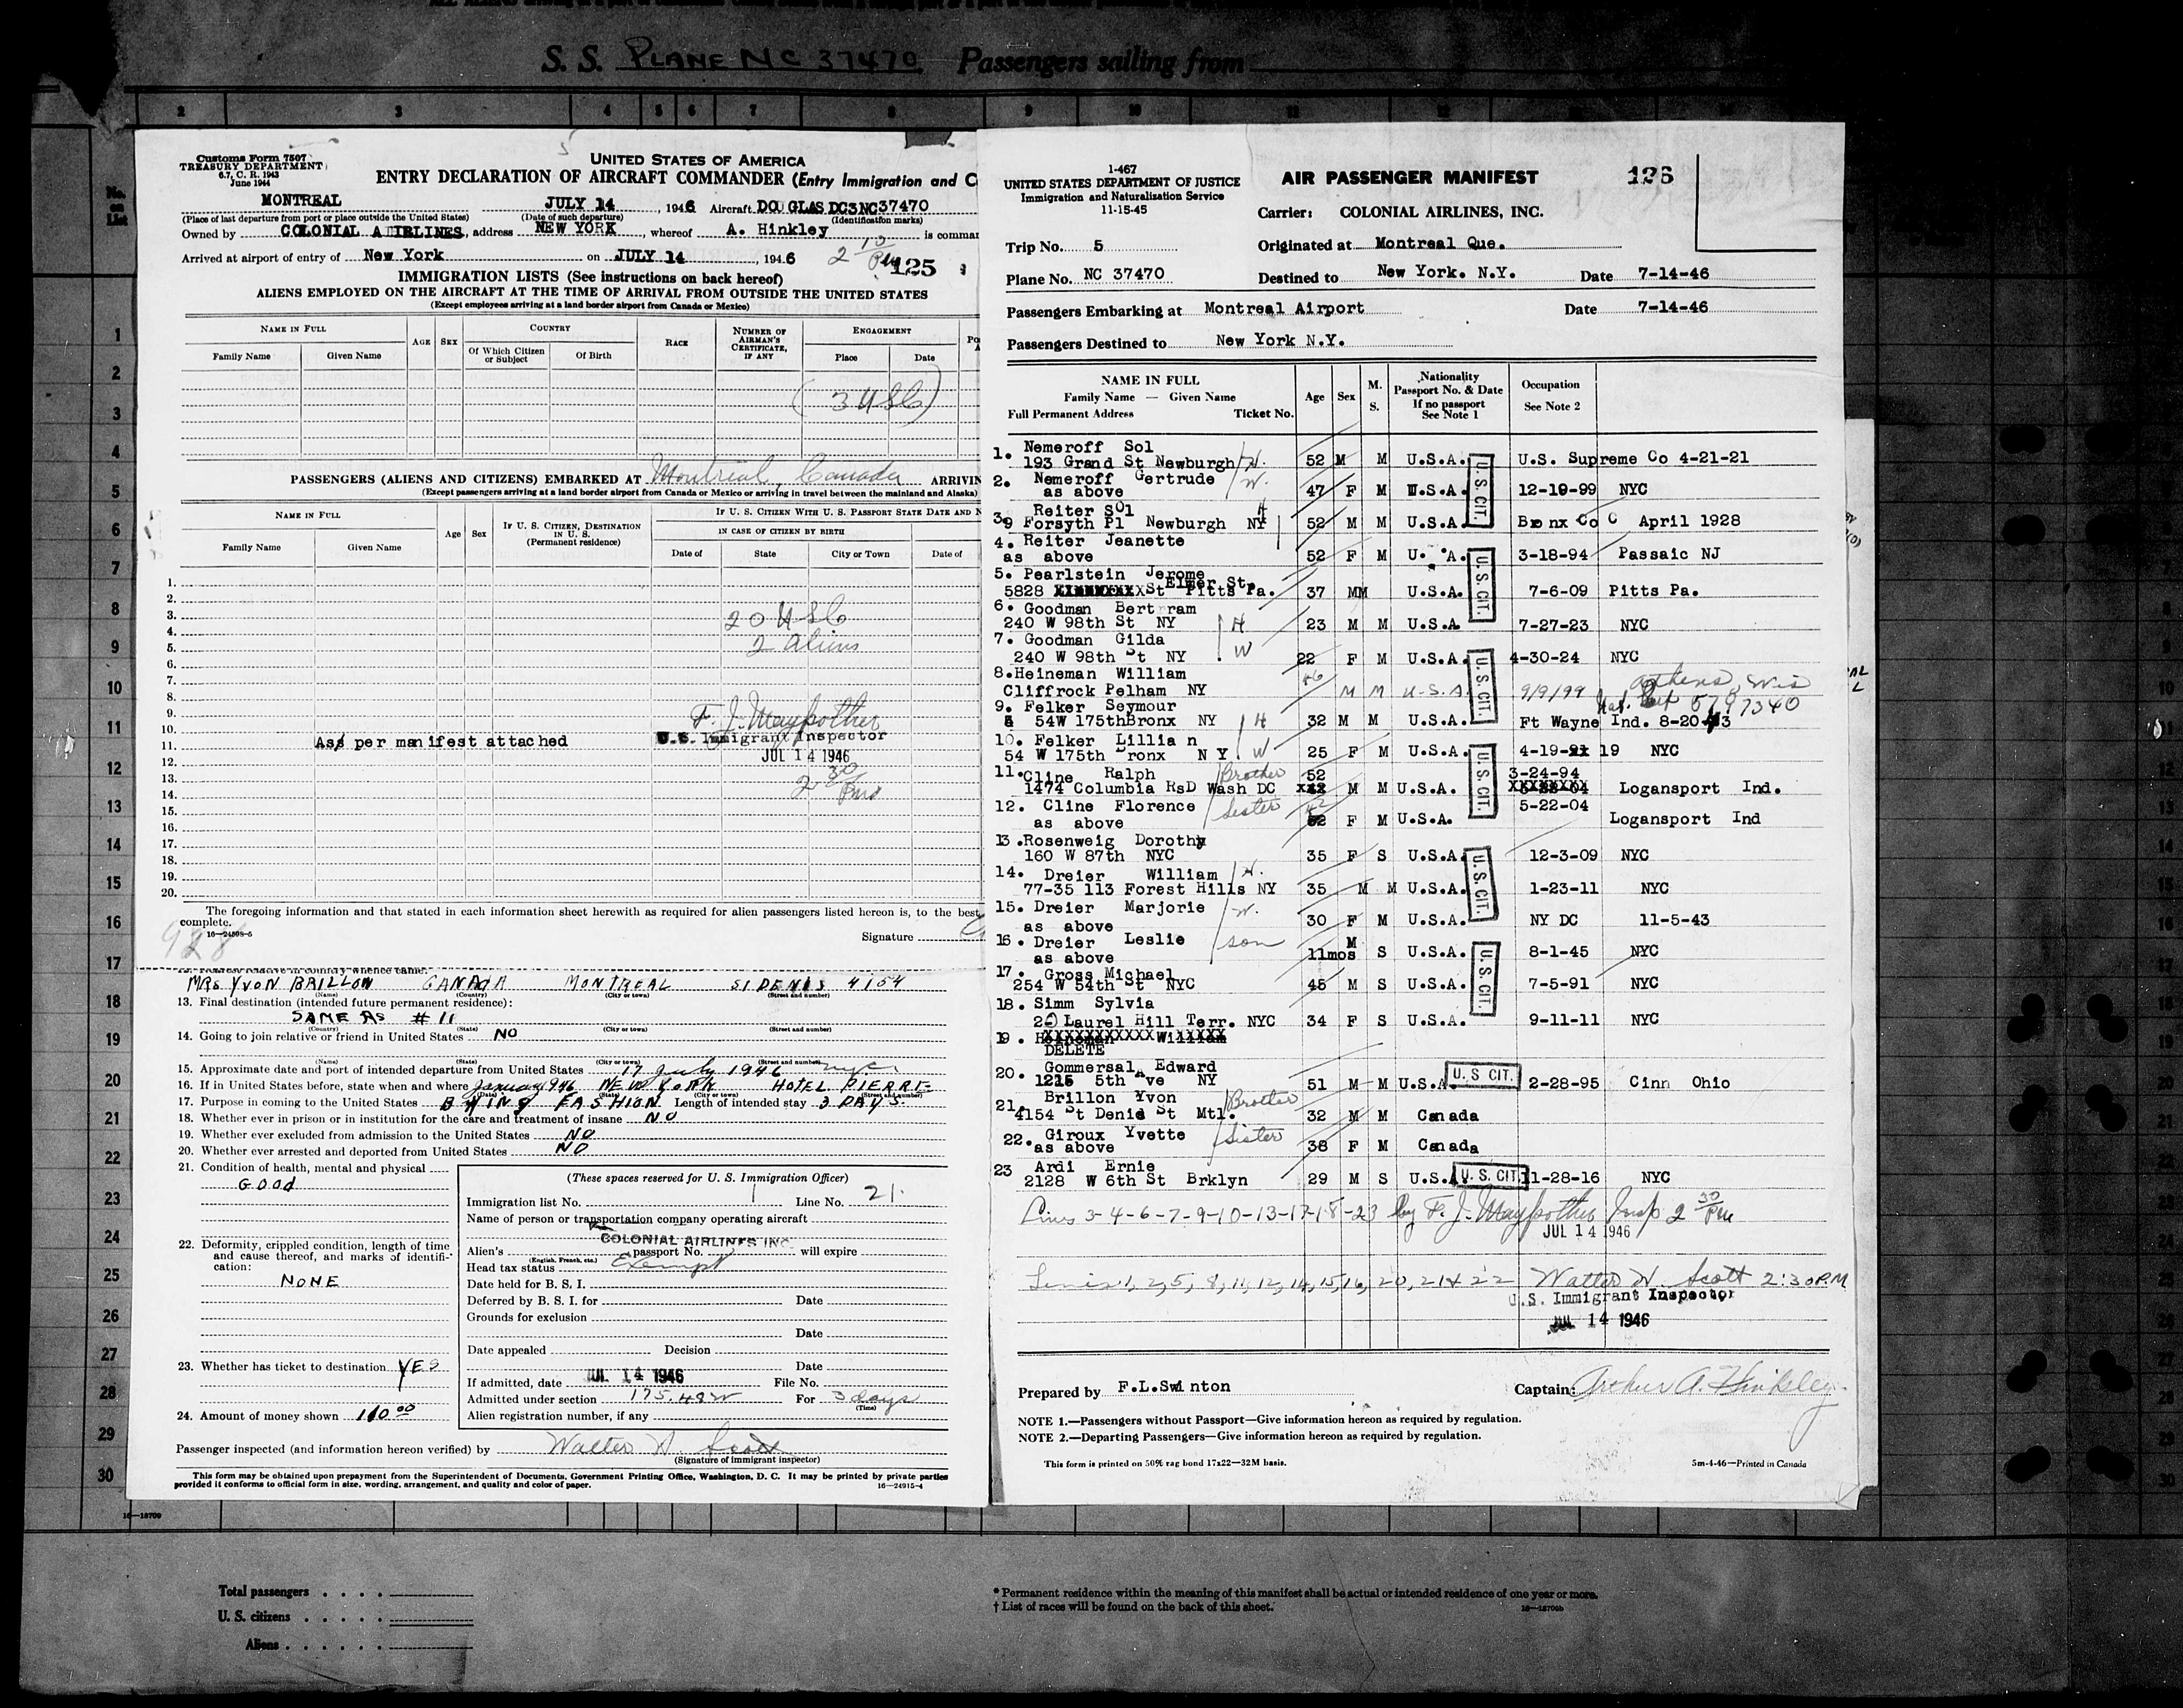 S. S. PLANE NC 37470 Passengers sailing from
2 3 4 5 6 7 8 9 10 11 12
Customs Form 7507
TREASURY DEPARTMENT
6.7, C. R. 1943
June 1944
UNITED STATES OF AMERICA
ENTRY DECLARATION OF AIRCRAFT COMMANDER (Entry Immigration and C
MONTREAL JULY 14, 1946 Aircraft DOUGLAS DC3 NC37470
(Place of last departure from port or place outside the United States) (Date of such departure) (Identification marks)
Owned by COLONIAL AIRLINES, address NEW YORK, whereof A. Hinkley is comman
Arrived at airport of entry of New York on JULY 14, 1946 2 10 PM 125
IMMIGRATION LISTS (See instructions on back hereof)
ALIENS EMPLOYED ON THE AIRCRAFT AT THE TIME OF ARRIVAL FROM OUTSIDE THE UNITED STATES
(Except employees arriving at a land border airport from Canada or Mexico)
NAME IN FULL AGE SEX COUNTRY RACE NUMBER OF AIRMAN'S CERTIFICATE, IF ANY ENGAGEMENT
Family Name Given Name Of Which Citizen or Subject Of Birth Place Date
(3 USC)
PASSENGERS (ALIENS AND CITIZENS) EMBARKED AT Montreal, Canada ARRIVIN
(Except passengers arriving at a land border airport from Canada or Mexico or arriving in travel between the mainland and Alaska)
NAME IN FULL Age Sex IF U. S. CITIZEN, DESTINATION IN U. S. (Permanent residence) IF U. S. CITIZEN WITH U. S. PASSPORT STATE DATE AND N
IN CASE OF CITIZEN BY BIRTH
Family Name Given Name Date of State City or Town Date of
1.
2.
3. 20 USC
4.
5. 2 Aliens
6.
7.
8.
9. F. J. Maypother
10. U.S. Immigrant Inspector
11. Ass per manifest attached
12. JUL 14 1946
13. 2 30
14. Pm
15.
16.
17.
18.
19.
20.
The foregoing information and that stated in each information sheet herewith as required for alien passengers listed hereon is, to the best
complete.
16—24598-5
Signature
928
MRS YVON BRILLON CANADA MONTREAL ST DENIS 4154
(Name) (Country) (City or town) (Street and number)
13. Final destination (intended future permanent residence):
SAME AS # 11
(Country) (State) (City or town) (Street and number)
14. Going to join relative or friend in United States NO
(Name) (State) (City or town) (Street and number)
15. Approximate date and port of intended departure from United States 17 July 1946 nyc
16. If in United States before, state when and where January 1946 NEW YORK HOTEL PIERRE
(Date) (State) (City or town) (Street and number)
17. Purpose in coming to the United States BYING FASHION Length of intended stay 3 DAYS.
18. Whether ever in prison or in institution for the care and treatment of insane NO
19. Whether ever excluded from admission to the United States NO
20. Whether ever arrested and deported from United States NO
21. Condition of health, mental and physical
GOOd
22. Deformity, crippled condition, length of time and cause thereof, and marks of identification:
NONE
23. Whether has ticket to destination YES
24. Amount of money shown 110 00
(These spaces reserved for U. S. Immigration Officer)
Immigration list No. 1 Line No. 21.
Name of person or transportation company operating aircraft
COLONIAL AIRLINES INC
Alien's passport No. will expire
(English, French, etc.)
Head tax status Exempt
Date held for B. S. I.
Deferred by B. S. I. for Date
Grounds for exclusion
Date
Date appealed Decision
Date
If admitted, date JUL 14 1946 File No.
Admitted under section 175.48 For 3 days
(Time)
Alien registration number, if any
Passenger inspected (and information hereon verified) by Walter W. Scott
(Signature of immigrant inspector)
This form may be obtained upon prepayment from the Superintendent of Documents, Government Printing Office, Washington, D. C. It may be printed by private parties
provided it conforms to official form in size, wording, arrangement, and quality and color of paper.
16—24915-4
1-467
UNITED STATES DEPARTMENT OF JUSTICE
Immigration and Naturalization Service
11-15-45
AIR PASSENGER MANIFEST 126
Carrier: COLONIAL AIRLINES, INC.
Trip No. 5 Originated at Montreal Que.
Plane No. NC 37470 Destined to New York. N.Y. Date 7-14-46
Passengers Embarking at Montreal Airport Date 7-14-46
Passengers Destined to New York N.Y.
NAME IN FULL
Family Name — Given Name
Full Permanent Address Ticket No.
Age Sex M. S. Nationality Passport No. & Date If no passport See Note 1
Occupation See Note 2
1. Nemeroff Sol
193 Grand St Newburgh H. 52 M M U.S.A. U.S. Supreme Co 4-21-21
2. Nemeroff Gertrude W.
as above 47 F M U.S.A. 12-19-99 NYC
3. Reiter Sol H
9 Forsyth Pl Newburgh NY 52 M M U.S.A. Bronx Co C April 1928
4. Reiter Jeanette
as above 52 F M U. A. 3-18-94 Passaic NJ
5. Pearlstein Jerome
5828 XXXXXXXX St Elmer St. Pitts Pa. 37 MM U.S.A. 7-6-09 Pitts Pa.
6. Goodman Bertram
240 W 98th St NY H 23 M M U.S.A 7-27-23 NYC
7. Goodman Gilda
240 W 98th St NY W 22 F M U.S.A. 4-30-24 NYC
8. Heineman William
Cliffrock Pelham NY 46 M M U.S.A. 9/9/99 Athens, Wis
Nat. 5797340
9. Felker Seymour
54W 175th Bronx NY H 32 M M U.S.A. Ft Wayne Ind. 8-20-13
10. Felker Lillian
54 W 175th Bronx N Y W 25 F M U.S.A. 4-19-21 19 NYC
11. Cline Ralph Brother 52 3-24-94
1474 Columbia RsD Wash DC xxx M M U.S.A. XXXXXXXX Logansport Ind.
12. Cline Florence Sister 42 5-22-04
as above F M U.S.A. Logansport Ind
13. Rosenweig Dorothy
160 W 87th NYC 35 F S U.S.A. 12-3-09 NYC
14. Dreier William H.
77-35 113 Forest Hills NY 35 M M U.S.A. 1-23-11 NYC
15. Dreier Marjorie W.
as above 30 F M U.S.A. NY DC 11-5-43
16. Dreier Leslie son
as above 11mos M S U.S.A. 8-1-45 NYC
17. Gross Michael
254 W 54th St NYC 45 M S U.S.A. 7-5-91 NYC
18. Simm Sylvia
20 Laurel Hill Terr. NYC 34 F S U.S.A. 9-11-11 NYC
19. Heineman William
DELETE
20. Gommersal Edward
1215 5th Ave NY 51 M M U.S.A. U.S CIT. 2-28-95 Cinn Ohio
21. Brillon Yvon Brother
4154 St Denis St Mtl. 32 M M Canada
22. Giroux Yvette Sister
as above 38 F M Canada
23 Ardi Ernie
2128 W 6th St Brklyn 29 M S U.S.A U.S. CIT. 11-28-16 NYC
U.S. CIT.
U.S. CIT.
U.S. CIT.
U.S. CIT.
U.S. CIT.
U.S. CIT.
Lines 3-4-6-7-9-10-13-17-18-23 by F. J. Maypother Insp 2 30 Pm
JUL 14 1946
Lines 1, 2, 5, 8, 11, 12, 14, 15, 16, 20, 21 & 22 Walter W. Scott 2:30 P.M
U.S. Immigrant Inspector
JUL 14 1946
Prepared by F.L.Swinton Captain: Arthur A. Hinkley
NOTE 1.—Passengers without Passport—Give information hereon as required by regulation.
NOTE 2.—Departing Passengers—Give information hereon as required by regulation.
This form is printed on 50% rag bond 17x22—32M basis. 5m-4-46—Printed in Canada
No. on List
1
2
3
4
5
6
7
8
9
10
11
12
13
14
15
16
17
18
19
20
21
22
23
24
25
26
27
28
29
30
16—18709
Total passengers
U. S. citizens
Aliens
* Permanent residence within the meaning of this manifest shall be actual or intended residence of one year or more.
† List of races will be found on the back of this sheet.